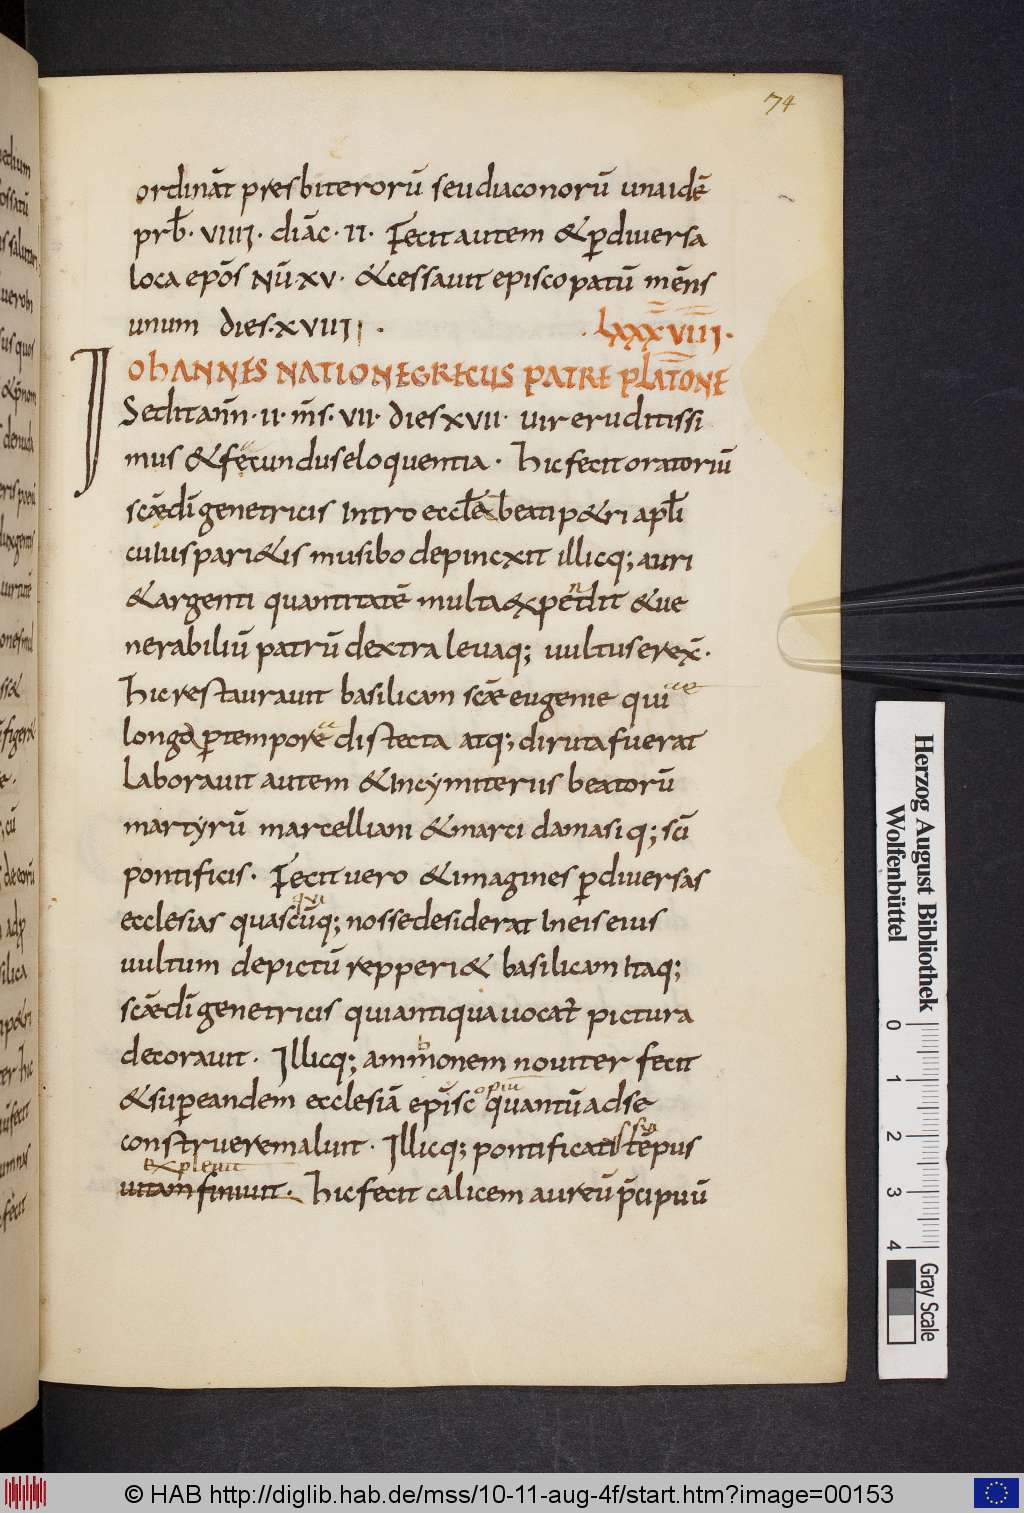 74
ordināt presbiterorū seu diaconorū una idē
prb̄· VIIII· diāc· II· Fecit autem & p̄ diversa
loca epōs NŪ· XV· & cessavit episcopatū mēns
unum dies· XVIIII·
· LXXXVIIII·
IOHANNES NATIONE GRECUS PATRE PLATONE
Sedit ann̄· II· m̄s· VII· dies XVII· vir eruditissi
mus & fecundus eloquentia· hic fecit oratoriū
scæ dī genetricis Intro eccl̄ā beati p&ri apl̄i
cuius pari&is musibo depincxit illicq; auri
& argenti quantitatē multa expendit & ve
nerabiliū patrū dextra levaq; vultus erex̄·
hic restauravit basilicam scæ eugenie qui
longo p̄ tempore distecta atq; diruta fuerat
laboravit autem & In cymiterus beatorū
martyrū marcelliani & marci damasiq; scī
pontificis· Fecit vero & imagines p̄ diversas
ecclesias quas cūq; qui nosse desiderat In eis eius
vultum depictū repperi& basilicam Itaq;
scæ dī genetricis qui antiqua vocat̄ pictura
decoravit· Illicq; ammonem noviter fecit
& sup̄ eandem ecclesiā episc̄ quantū ad se
construere maluit· Illicq; pontificat sui tēpus
explevit
vitam finivit· hic fecit calicem aureū p̄cipuū
Herzog August Bibliothek
Wolfenbüttel
0 1 2 3 4
Gray Scale
© HAB http://diglib.hab.de/mss/10-11-aug-4f/start.htm?image=00153